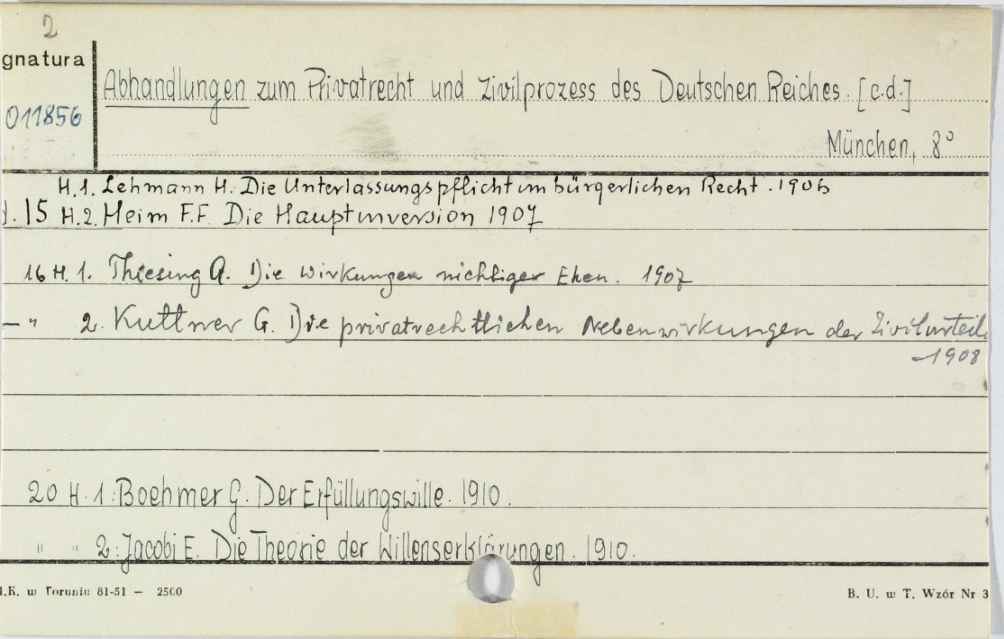 2
gnatura
011856
Abhandlungen zum Privatrecht und Zivilprozess des Deutschen Reiches. [c.d.]
München, 8°
H.1. Lehmann H. Die Unterlassungspflicht im bürgerlichen Recht. 1906
15 H.2. Heim F.F. Die Hauptinversion 1907
16 H. 1. Thiesing A. Die Wirkungen nichtiger Ehen. 1907
— " 2. Kuttner G. Die privatrechtlichen Nebenwirkungen der Zivilurteile
-1908
20 H. 1. Boehmer G. Der Erfüllungswille. 1910.
" " 2. Jacobi E. Die Theorie der Willenserklärungen. 1910.
.K. w Toruniu 81-51 — 2500
B. U. w T. Wzór Nr 3